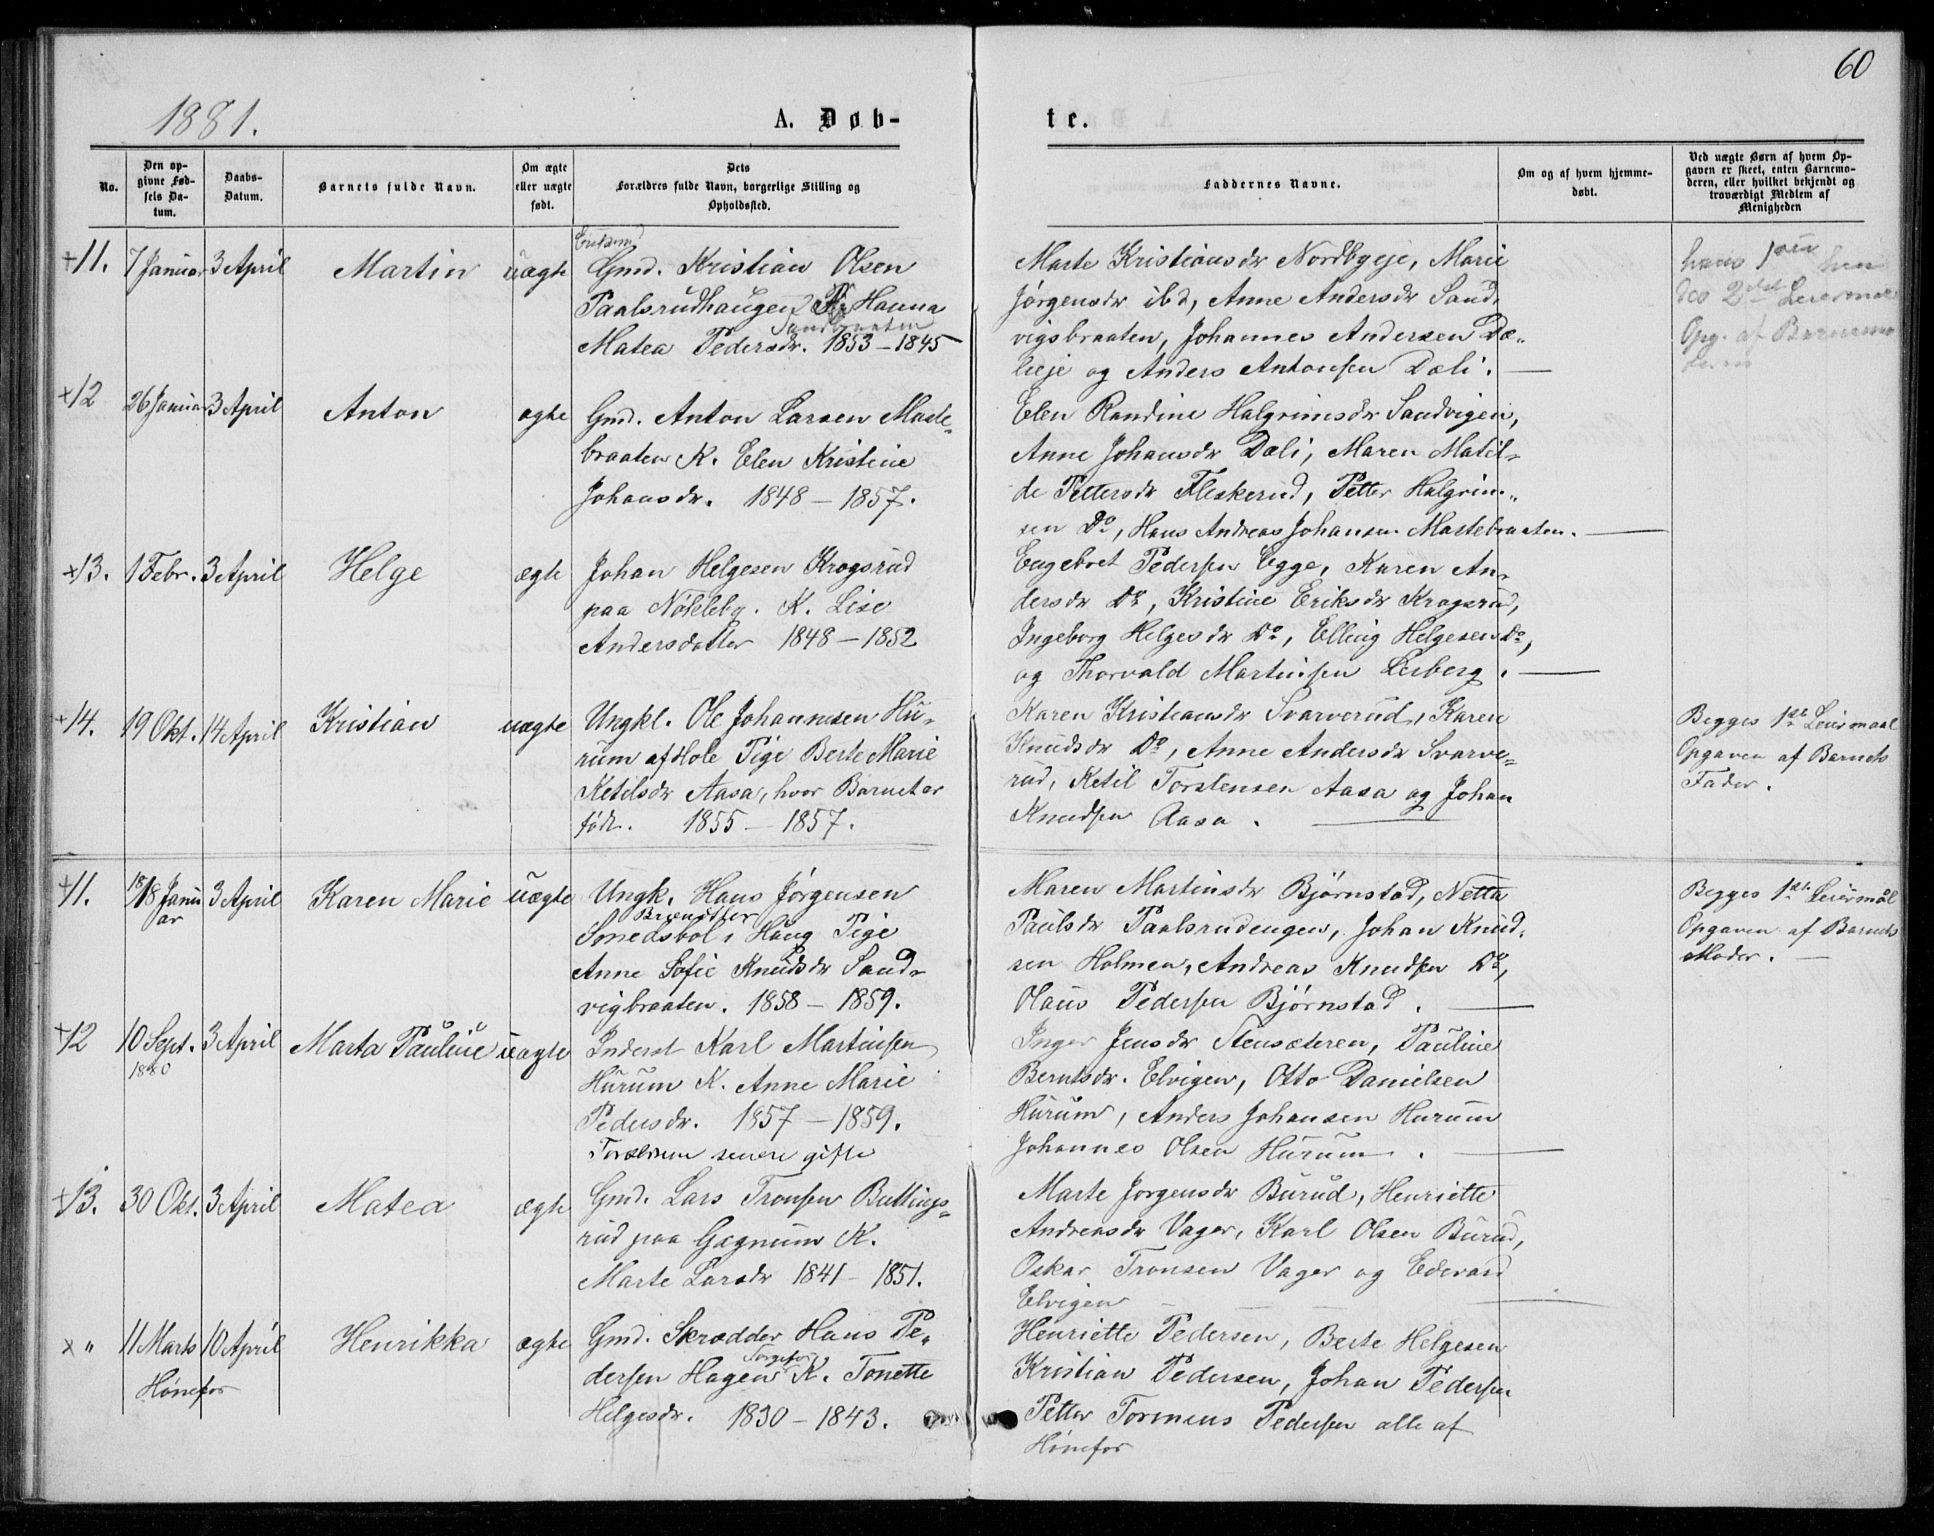 60
1881.
A. Døb-
te.
No.
Den op-
givne Fød-
sels Da-
tum.
Daabs-
Datum.
Barnets fulde Navn.
Om ægte
eller uægte
født.
Dets
Forældres fulde Navn, borgerlige Stilling og
Opholdssted.
Faddernes Navne.
Om og af hvem hjemme-
døbt.
Ved uægte Børn af hvem Op-
gaven er skeet, enten Barnemo-
deren, eller hvilket bekjendt og
troværdigt Medlem af
Menigheden
+11. 7 Januar 3 April Martin uægte
Gmd. Kristian Olsen
Paalsrudhaugen Hanna
Sandbraaten
Matea Pedersdr. 1853 – 1845
Marte Kristiansdr Nordbyeje, Marie
Jørgensdr ibd, Anne Andersdr Sand-
vigsbraaten, Johannes Andersen Dæ-
lieje og Anders Antonsen Dæli. —
hans 1ste hen
des 2det Leiermaal
Opg. af Barnemo
deren
+12 26 Januar 3 April Anton ægte
Gmd. Anton Larsen Maste-
braaten K. Elen Kristine
Johansdr. 1848 – 1857.
Elen Randine Halgrimsdr Sandvigen,
Anne Johansdr Dæli, Maren Matil-
de Pettersdr Fleskerud, Petter Halgrim-
sen Do, Hans Andreas Johansen Mastebraaten. —
+13. 1 Febr. 3 April Helge ægte
Johan Helgesen Krogsrud
paa Nøkleby. K. Lise
Andersdatter 1848 – 1852
Engebret Pedersen Egge, Karen An-
dersdr Do, Kristine Eriksdr Krogsrud,
Ingeborg Helgesdr Do, Elling Helgesen Do,
og Thorvald Martinsen Lerberg. —
+14. 19 Okt. 14 April Kristian uægte
Ungkl. Ole Johannesen Hu-
rum af Hole Pige Berte Marie
Ketilsdr Aasa, hvor Barnet er
født. 1855 – 1857.
Karen Kristiansdr Svarverud, Karen
Knudsdr Do, Anne Andersdr Svarve-
rud, Ketil Torstensen Aasa og Johan
Knudsen Aasa. —
Begges 1ste Leiermaal
Opgaven af Barnets
Fader.
+11. 18 Janu 3 April Karen Marie uægte
ar
Ungk. Hans Jørgensen
Smedsbøl i Haug Pige
Anne Sofie Knudsdr Sand-
vigbraaten. 1858 – 1859.
Maren Martinsdr Bjørnstad, Netta
Paulsdr Paalsrudengen, Johan Knud-
sen Holmen, Andreas Knudsen Do,
Olaus Pedersen Bjørnstad. —
Begges 1ste Leiermål
Opgaven af Barnets
Moder. —
+12 10 Sept. 3 April Marta Pauline uægte
1880
Inderst Karl Martinsen
Hurum K. Anne Marie
Pedersdr. 1857 – 1859.
Forældrene senere gifte
Inger Jensdr Stensæteren, Pauline
Berntsdr. Elvigen, Otto Danielsen
Hurum, Anders Johansen Hurum
Johannes Olsen Hurum. —
+13. 30 Okt. 3 April Matea ægte
Gmd. Lars Tronsen Buttings-
rud paa Gagnum K.
Marte Larsdr 1841 – 1851.
Marte Jørgensdr Burud, Henriette
Andreasdr Vager, Karl Olsen Burud,
Oskar Tronsen Vager og Edvard
Elvigen —
x " 11 Marts 10 April Henrikka ægte
Hønefos
Gmd. Skrædder Hans Pe-
dersen Hagen K. Tonette
Helgesdr. 1830 – 1843.
Henriette Pedersen, Berte Helgesen
Kristian Pedersen, Johan Pedersen
Petter Pedersen alle af
Hønefos